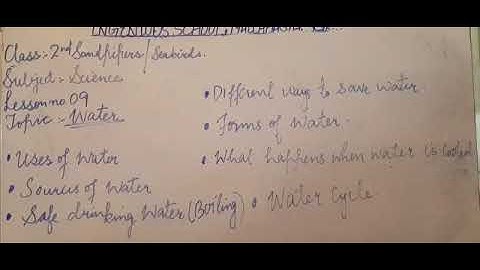 INGENIOUS SCHOOL,
Class:- 2nd Sandpipers/Seabirds.
Subject:- Science
Lesson no 09
Topic:- Water
• Uses of Water
• Sources of Water
• Safe drinking Water (Boiling)
• Different way to save water.
• Forms of Water.
• What happens when water is cooled
• Water Cycle.